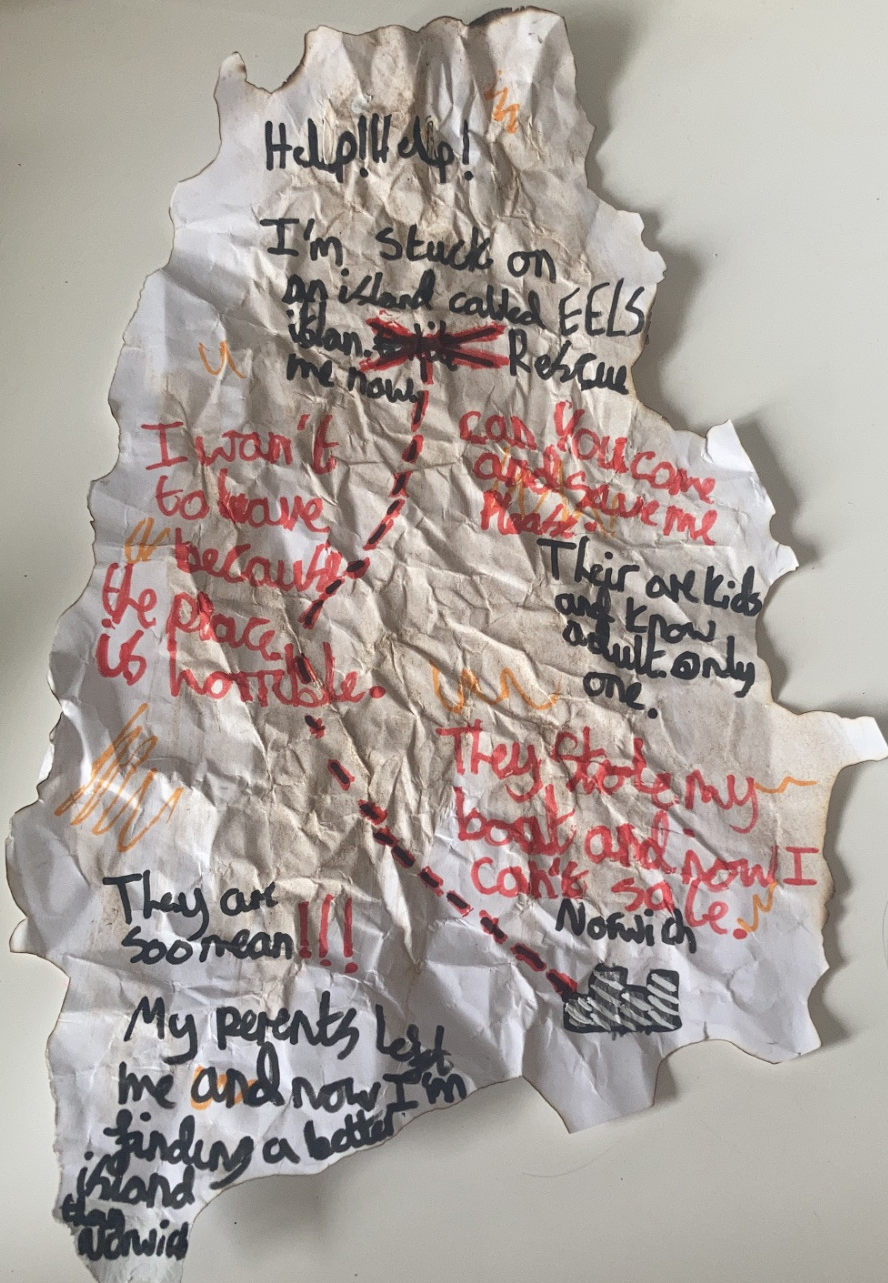 Help! Help!
I'm stuck on
an island called EELS
islan. Rescue
me now
I wan't
to leave
because
the place
is horrible.
can You come
and save me
Please.
Their are kids
and know
adult. only
one.
They stole my
boat and now I
can't sale.
Norwich
They are
soo mean!!!
My perents left
me and now I'm
finding a better
island
than
Norwich